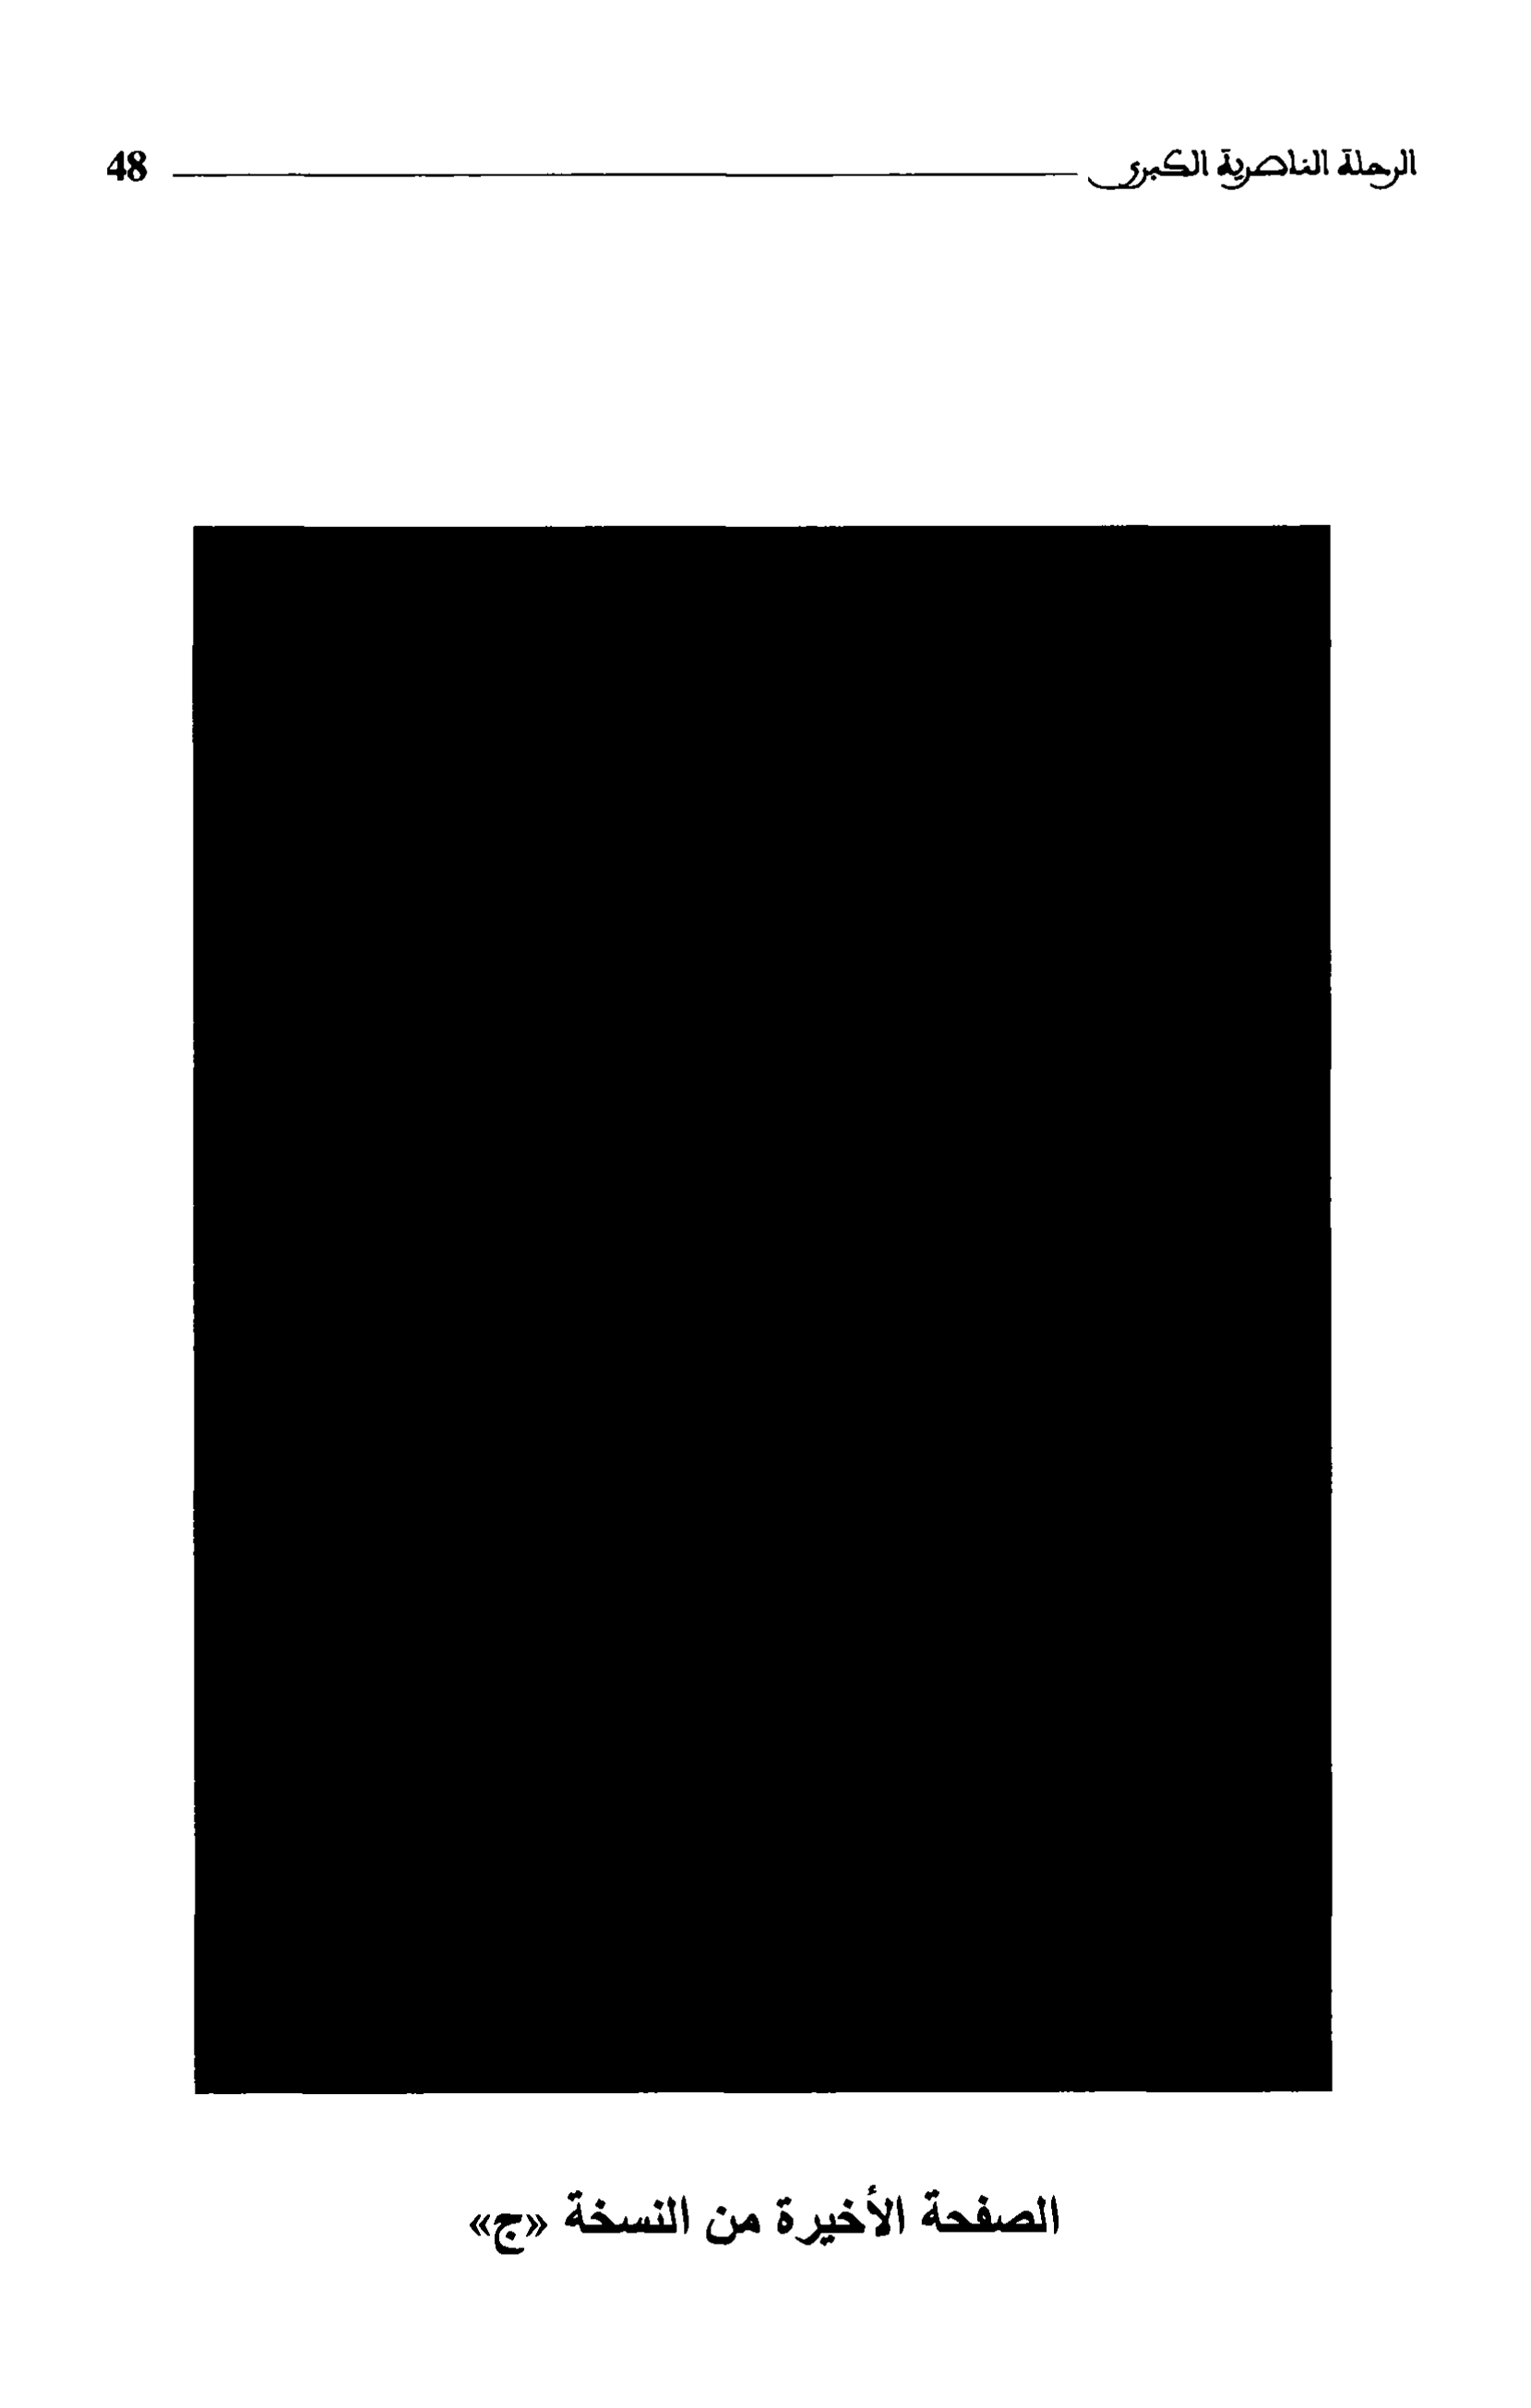 الرحلة الناصرية الكبرى 48
الصفحة الأخيرة من النسخة «ج»